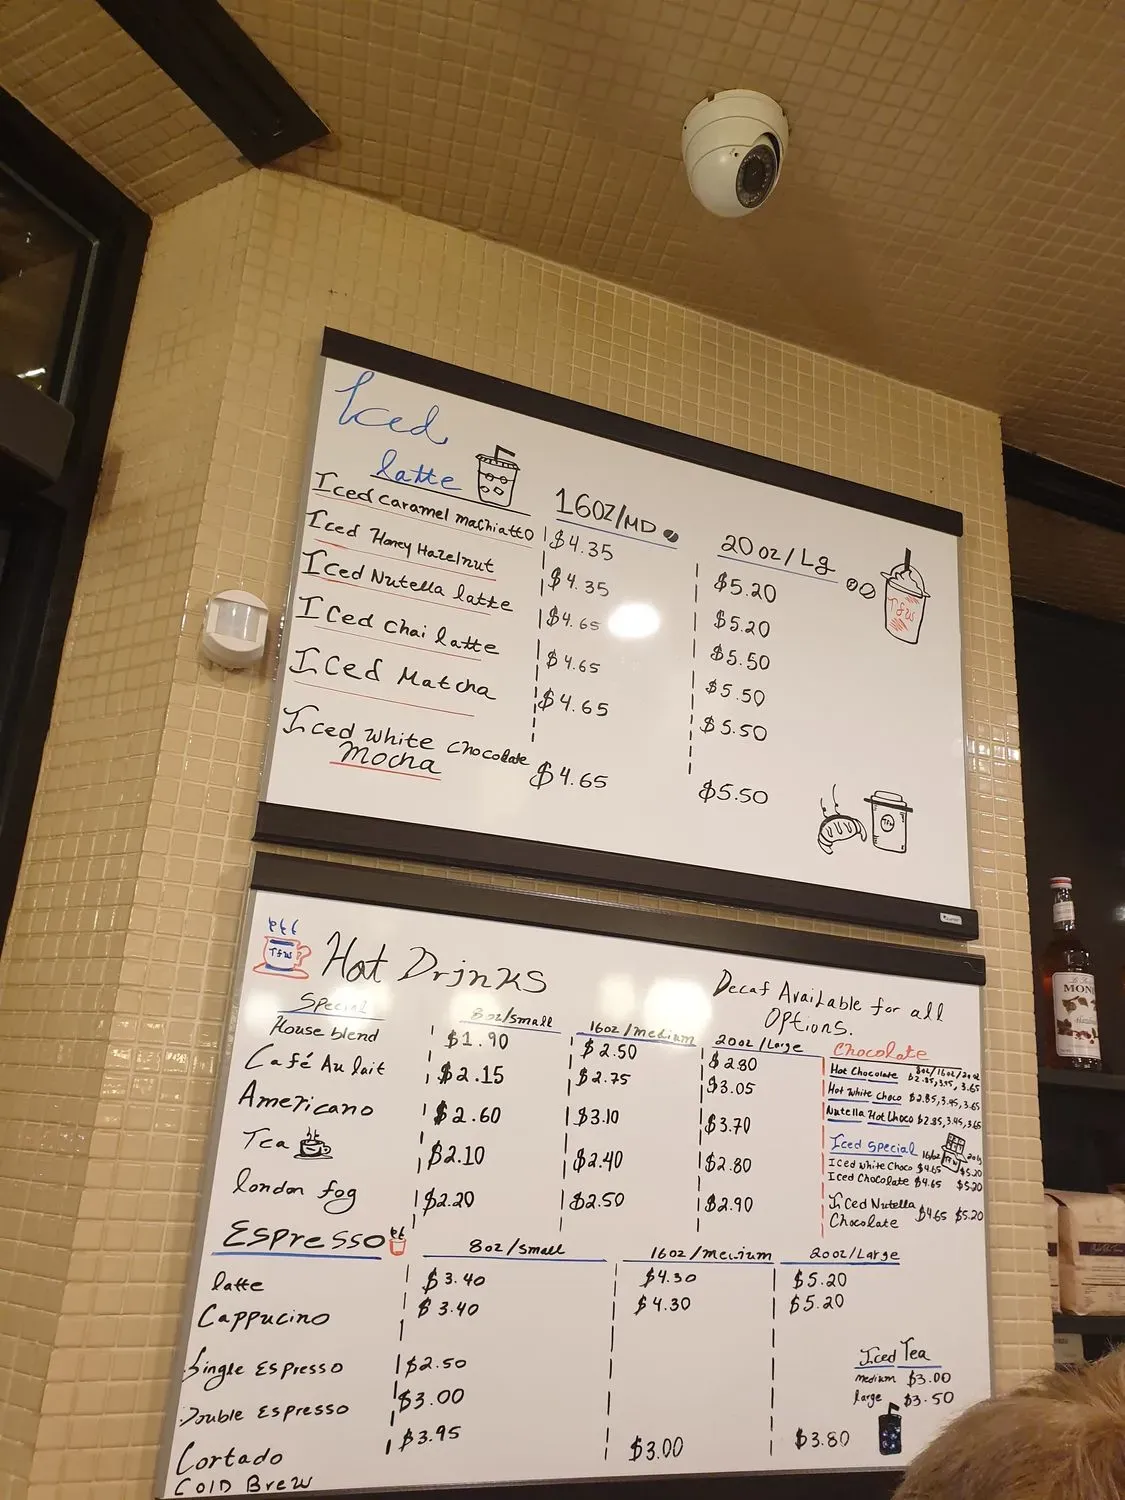 Iced
latte
16oz/MD
20 oz/Lg
Iced caramel machiatto $4.35 $5.20
Iced Honey Hazelnut $4.35 $5.20
Iced Nutella latte $4.65 $5.50
Iced Chai latte $4.65 $5.50
Iced Matcha $4.65 $5.50
Iced white chocolate
Mocha $4.65 $5.50
T&W
T&W
T&W
Hot Drinks
Decaf Available for all
Options.
Special 8oz/small 16oz/medium 20oz/Large
House blend $1.90 $2.50 $2.80
Café Au lait $2.15 $2.75 $3.05
Americano $2.60 $3.10 $3.70
Tea $2.10 $2.40 $2.80
london fog $2.20 $2.50 $2.90
Chocolate
8oz/16oz/20oz
Hot Chocolate $2.85, 3.45, 3.65
Hot white choco $2.85, 3.45, 3.65
Nutella Hot Choco $2.85, 3.45, 3.65
Iced Special
Iced white Choco $4.65 $5.20
Iced Chocolate $4.65 $5.20
Iced Nutella
Chocolate $4.65 $5.20
Espresso 8oz/small 16oz/medium 20oz/Large
latte $3.40 $4.30 $5.20
Cappucino $3.40 $4.30 $5.20
Single Espresso $2.50
Double Espresso $3.00
Cortado $3.95
Cold Brew $3.00 $3.80
Iced Tea
medium $3.00
large $3.50
MON